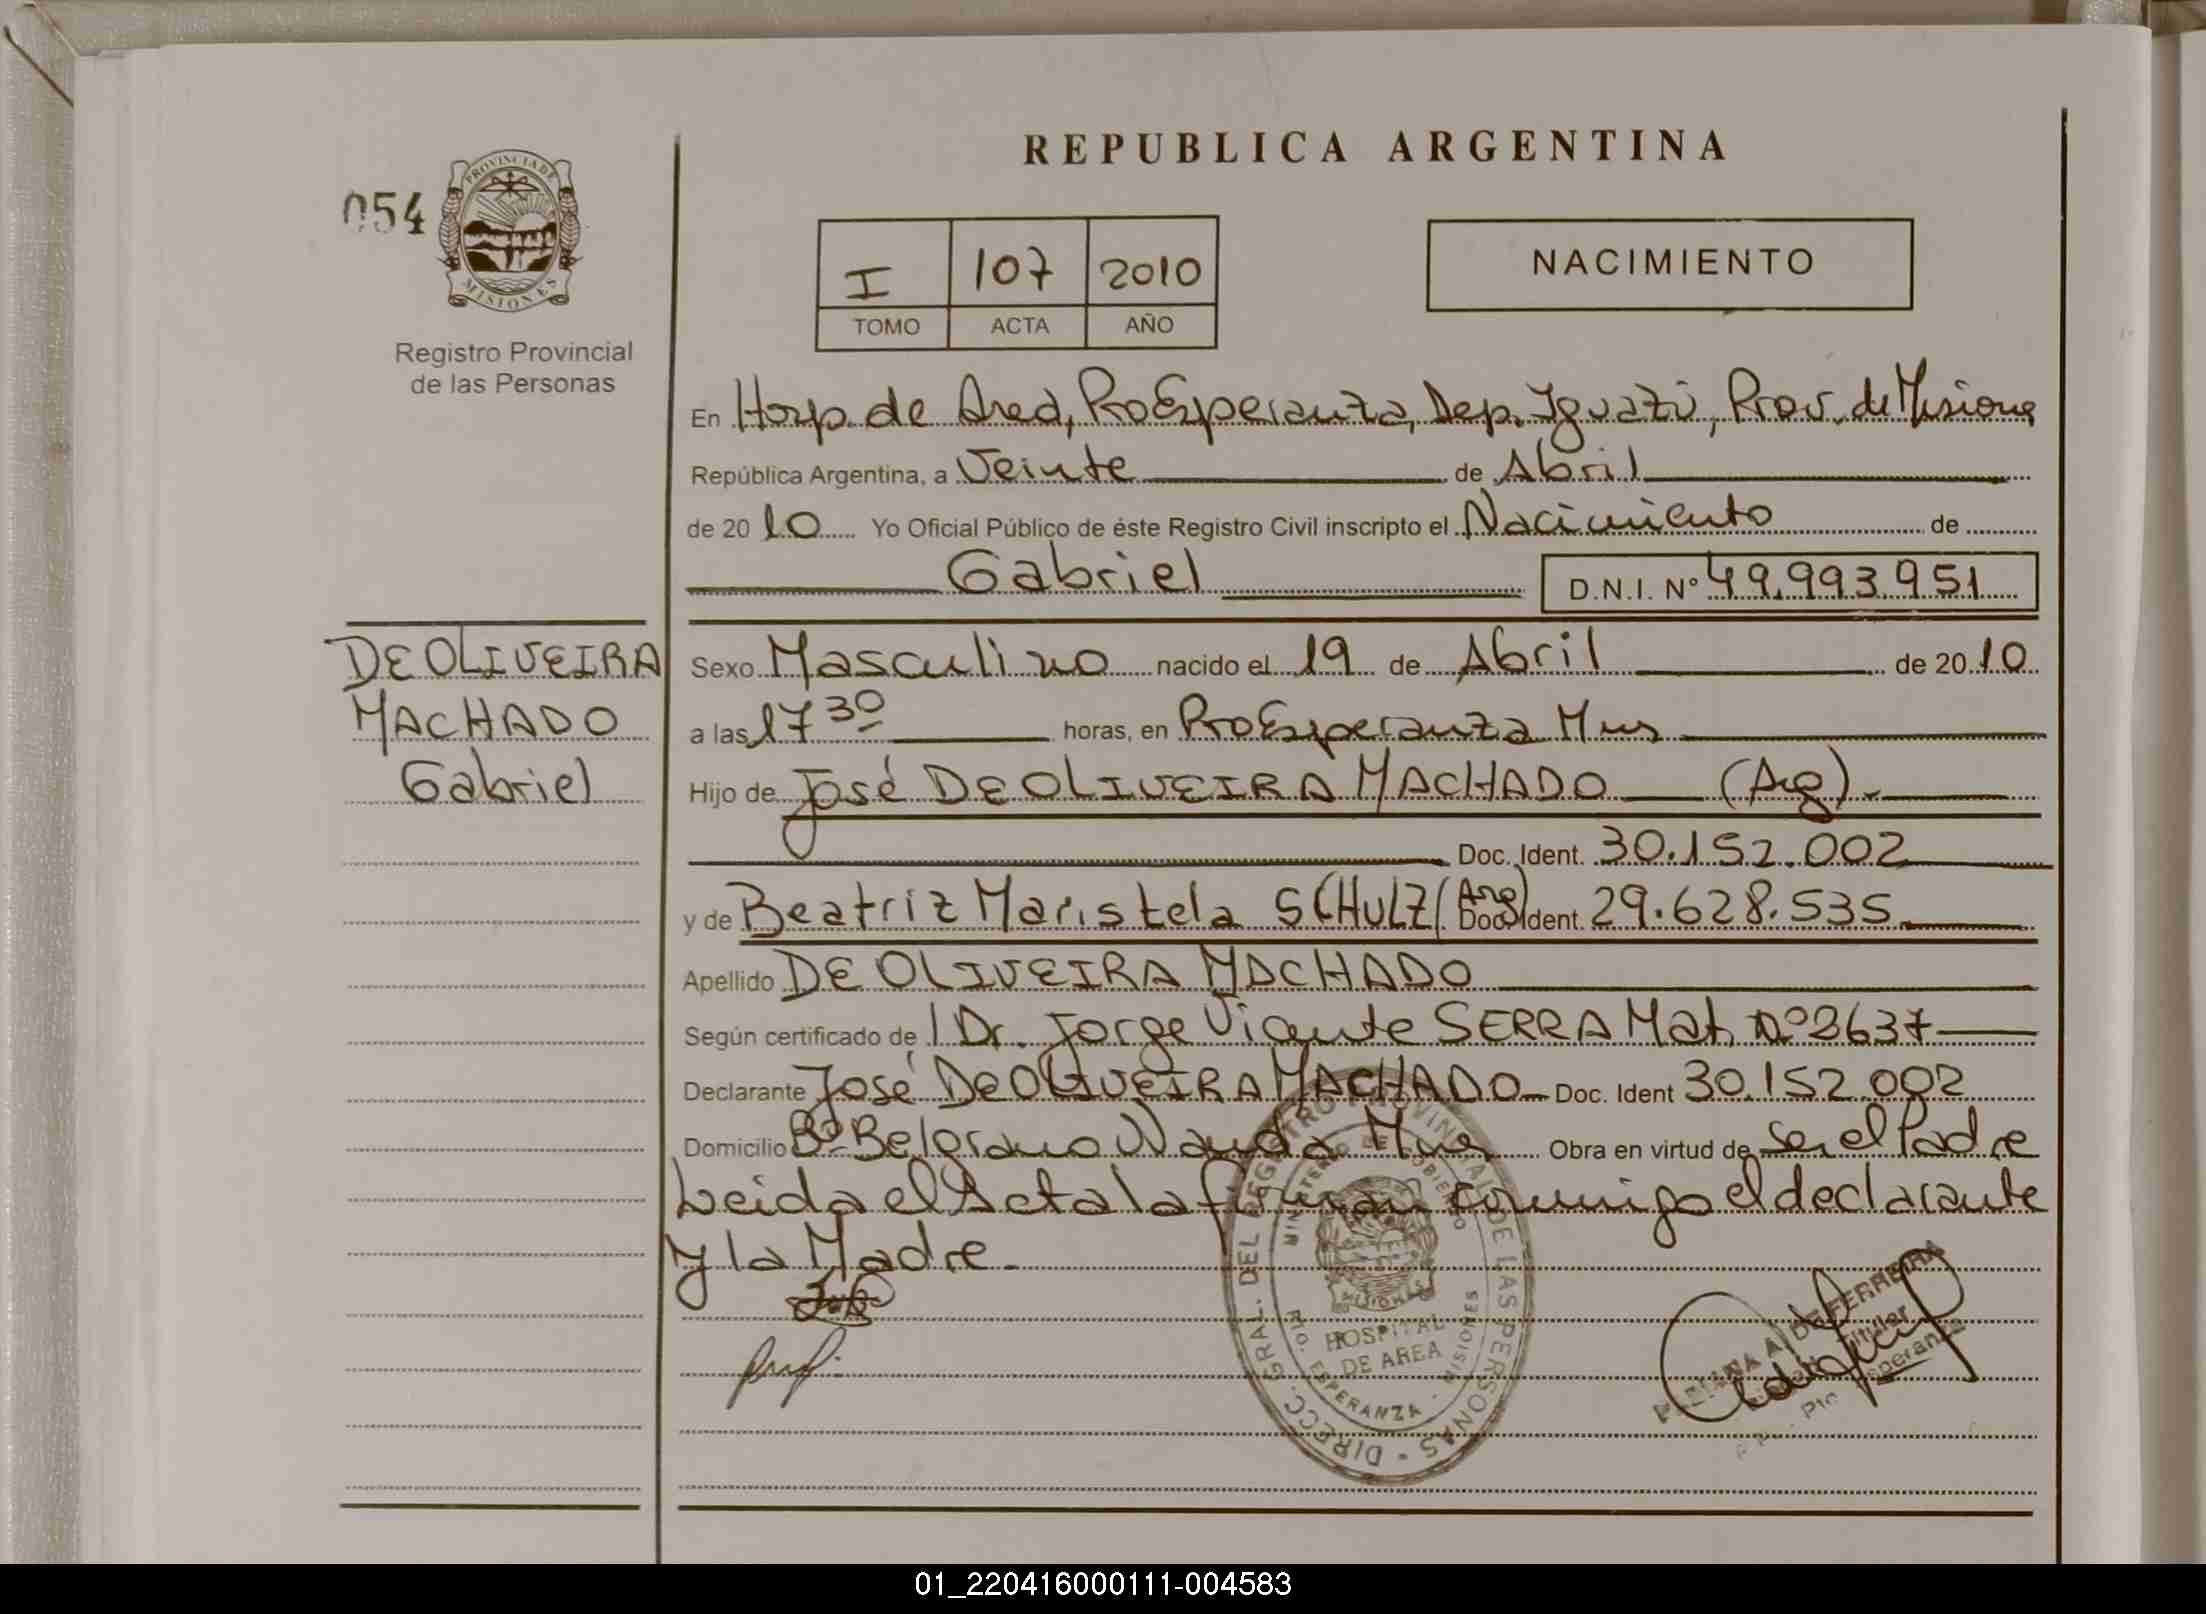 REPUBLICA ARGENTINA
054
PROVINCIA DE
MISIONES
Registro Provincial
de las Personas
I 107 2010
TOMO ACTA AÑO
NACIMIENTO
En Hosp. de Area, PtoEsperanza, Dep. Iguazú, Prov. de Misiones
República Argentina, a Veinte de Abril
de 2010 Yo Oficial Público de éste Registro Civil inscripto el Nacimiento de
Gabriel D.N.I. Nº 49.993.951
DE OLIVEIRA
MACHADO
Gabriel
Sexo Masculino nacido el 19 de Abril de 2010
a las 17 30 horas, en PtoEsperanza Mnes
Hijo de José DE OLIVEIRA MACHADO (Arg).
Doc. Ident. 30.152.002
y de Beatriz Maristela SCHULZ (Arg) Doc. Ident. 29.628.535
Apellido DE OLIVEIRA MACHADO
Según certificado de l Dr. Jorge Vicente SERRA Mat. Nº 2637
Declarante José DE OLIVEIRA MACHADO Doc. Ident 30.152.002
Domicilio Bº Belgrano Wanda Mnes Obra en virtud de ser el Padre
Leida el Acta la firman conmigo el declarante
y la Madre.
DIRECC. GRAL. DEL REGISTRO PROVINCIAL DE LAS PERSONAS
MINISTERIO DE GOBIERNO
MISIONES
HOSPITAL
DE AREA
ESPERANZA - MISIONES
DE FERREIRA
Titular
Pto. Esperanza
01_220416000111-004583